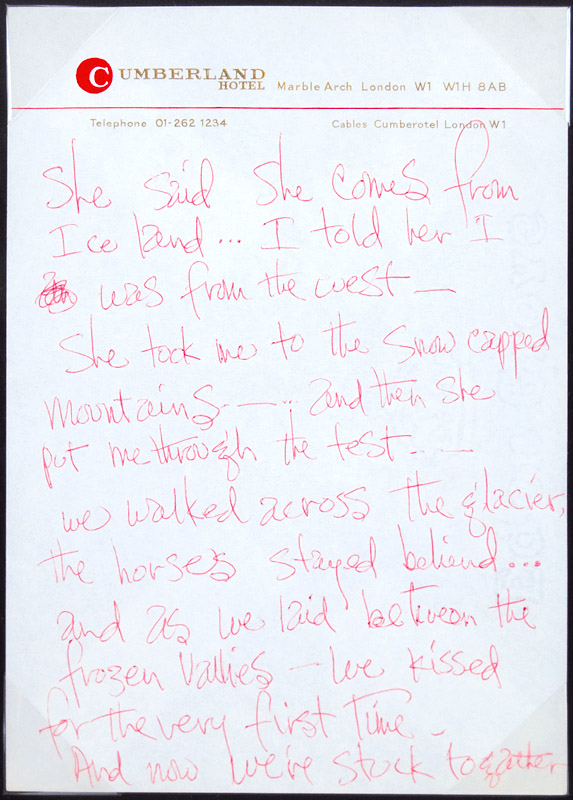 CUMBERLAND
HOTEL Marble Arch London W1 W1H 8AB
Telephone 01-262 1234 Cables Cumberotel London W1
She said She comes from
Ice land... I told her I
was from the west —
She took me to the snow capped
mountains - —... and then she
put me through the test - —
we walked across the glacier,
the horses stayed behiend...
and as we laid between the
frozen Vallies — we kissed
for the very first Time -
And now we're stuck together